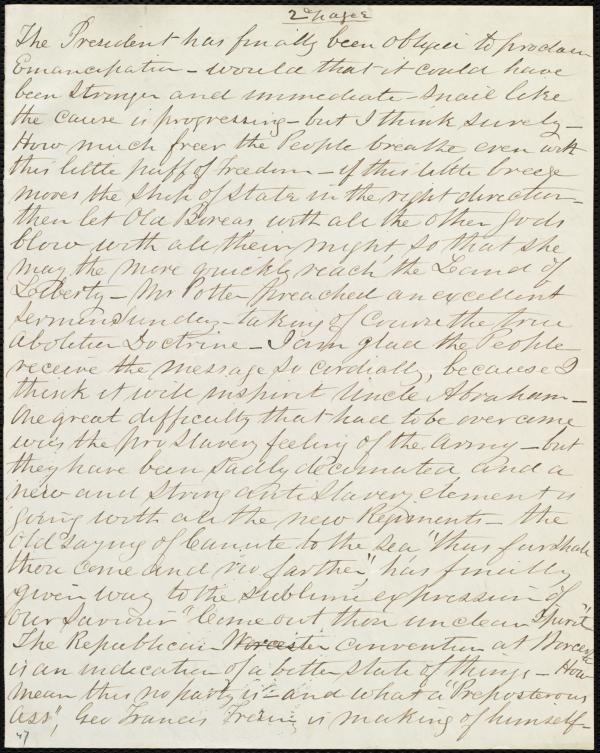 2d page
The President has finally been obliged to proclaim
Emancipation - would that it could have
been stronger and immediate - snail like
the cause is progressing - but I think surely -
How much freer the People breathe even with
this little puff of Freedom - if this little breeze
moves the Ship of State in the right direction -
then let Old Boreas with all the other Gods
blow with all their might, so that she
may the more quickly reach the Land of
Liberty - Mr Potter preached an excellent
sermon Sunday - taking of course the true
Abolition Doctrine - I am glad the People
receive the message so cordially, because I
think it will inspirit Uncle Abraham -
One great difficulty that had to be overcome
was the pro Slavery feeling of the Army - but
they have been sadly decimated and a
new and strong anti Slavery element is
going with all the new Regiments - the
old saying of Canute to the Sea "thus far shalt
thou come and no farther", has finally
given way to the sublime expression of
our Saviour "Come out thou unclean Spirit"
The Republican Worcester convention at Worcester
is an indication of a better state of things - How
mean this no party is - and what a "Preposterous
Ass", Geo Francis Train is making of himself -
47